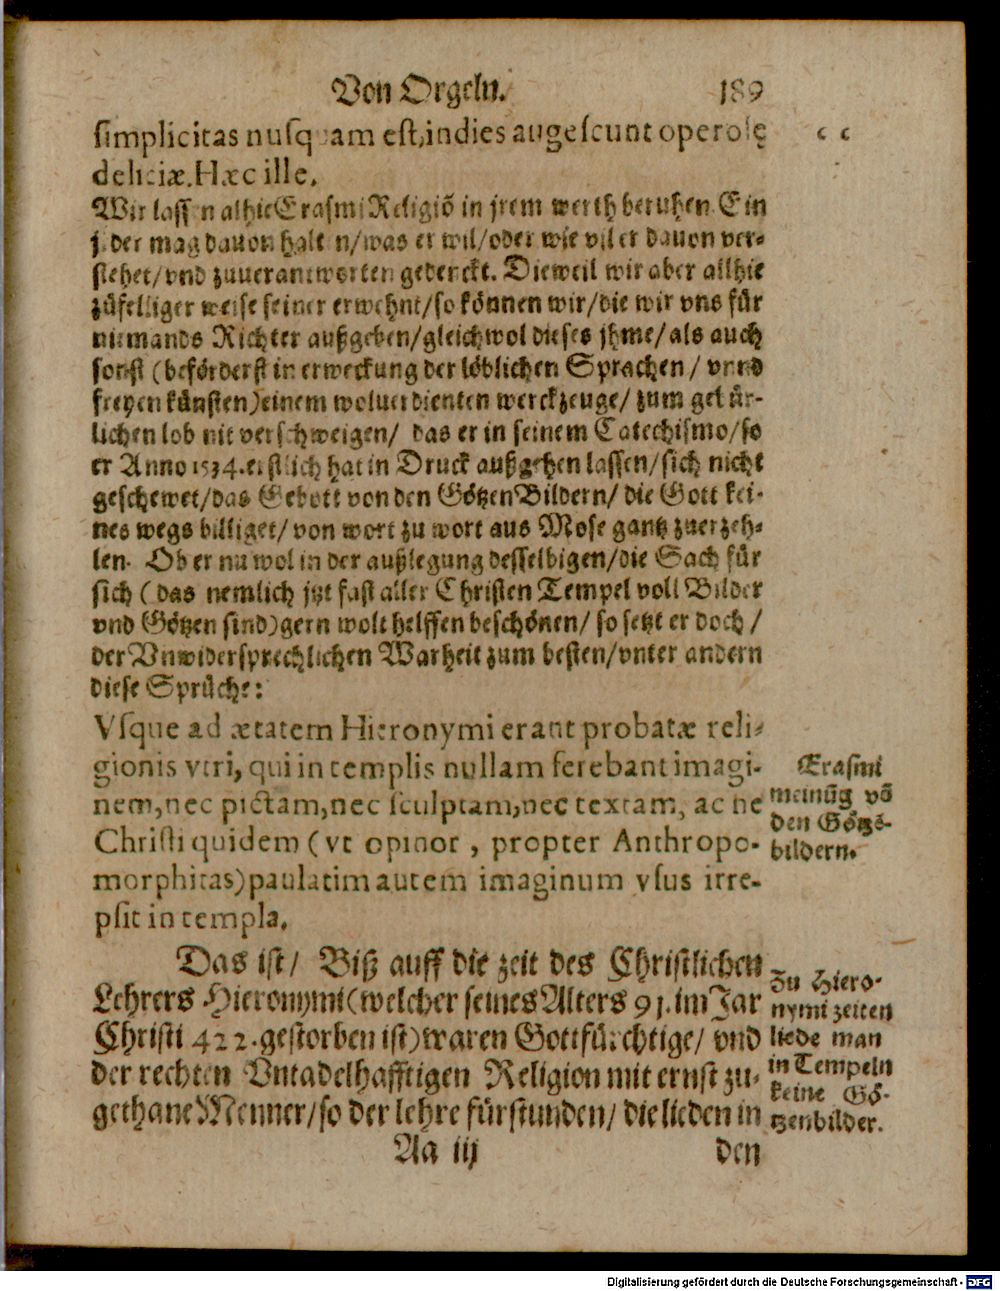 Von Orgeln. 189
ſimplicitas nuſquam eſt, indies augeſcunt operoſę
deliciæ. Hæc ille.
Wir laſſen alhie Eraſmi Religiõ in jrem werth beruhen. Ein
jeder mag dauon halten/was er wil/oder wie vil er dauon ver-
ſtehet/vnd zuuerantworten gedenckt. Dieweil wir aber allhie
zůfelliger weiſe ſeiner erwehnt/ſo können wir/die wir vns für
niemands Richter außgeben/gleichwol dieſes jhme/als auch
ſonſt (beförderſt in erweckung der löblichen Sprachen / vnnd
freyen künſten) einem woluerdienten werckzeuge/ zum gebür-
lichen lob nit verſchweigen/ das er in ſeinem Catechiſmo/ſo
er Anno 1534. erſtlich hat in Druck außgehen laſſen/ſich nicht
geſchewet/das Gebott von den Götzen Bildern/ die Gott kei-
nes wegs billiget/ von wort zu wort aus Moſe gantz zuerzeh-
len. Ob er nu wol in der außlegung desſelbigen/die Sach für
ſich (das nemlich jtzt faſt aller Chriſten Tempel voll Bilder
vnd Götzen ſind) gern wolt helffen beſchönen/ ſo ſetzt er doch /
der Vnwiderſprechlichen Warheit zum beſten/vnter andern
dieſe Sprüche:
Vſque ad ætatem Hieronymi erant probatæ reli-
gionis viri, qui in templis nullam ferebant imagi-
nem, nec pictam, nec ſculptam, nec textam, ac ne
Chriſti quidem (vt opinor , propter Anthropo-
morphitas) paulatim autem imaginum vſus irre-
pſit in templa.
Eraſmi
meinũg võ
den Götzẽ-
bildern.
Das iſt/ Biß auff die zeit des Chriſtlichen
Lehrers Hieronymi (welcher ſeines Alters 91. im Jar
Chriſti 422. geſtorben iſt) waren Gottfürchtige/ vnd
der rechten Vntadelhafftigen Religion mit ernſt zu-
gethane Menner/ſo der lehre fürſtunden/ die lieden in
Zu Hiero-
nymi zeiten
liede man
in Tempeln
keine Gö-
tzenbilder.
Aa iij den
Digitalisierung gefördert durch die Deutsche Forschungsgemeinschaft - DFG